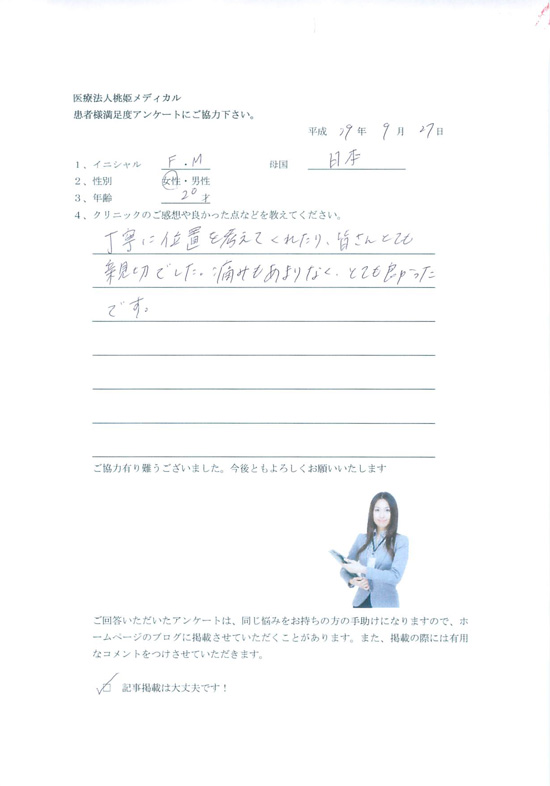 医療法人桃姫メディカル
患者様満足度アンケートにご協力下さい。
平成 29 年 9 月 27 日
1、イニシャル F・M 母国 日本
2、性別 女性・男性
3、年齢 20才
4、クリニックのご感想や良かった点などを教えてください。
丁寧に位置を考えてくれたり、皆さんとても
親切でした。痛みもあまりなく、とても良かった
です。
ご協力有り難うございました。今後ともよろしくお願いいたします
ご回答いただいたアンケートは、同じ悩みをお持ちの方の手助けになりますので、ホ
ームページのブログに掲載させていただくことがあります。また、掲載の際には有用
なコメントをつけさせていただきます。
☑ 記事掲載は大丈夫です！